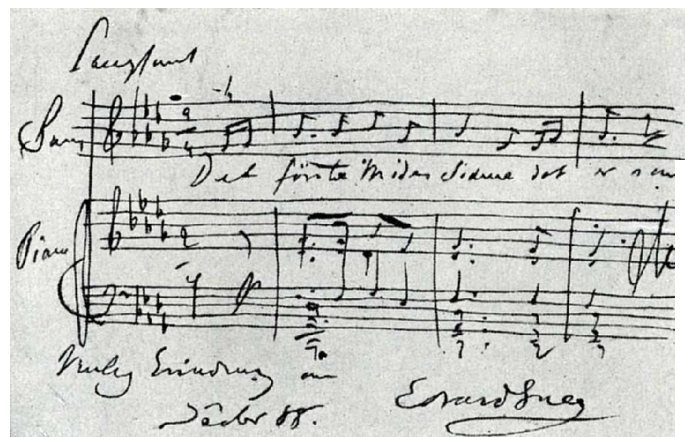 Langsomt
Sang
Det første Mødes Sødme det er som
Piano
Venlig Erindring
Decbr 88.
Edvard Grieg